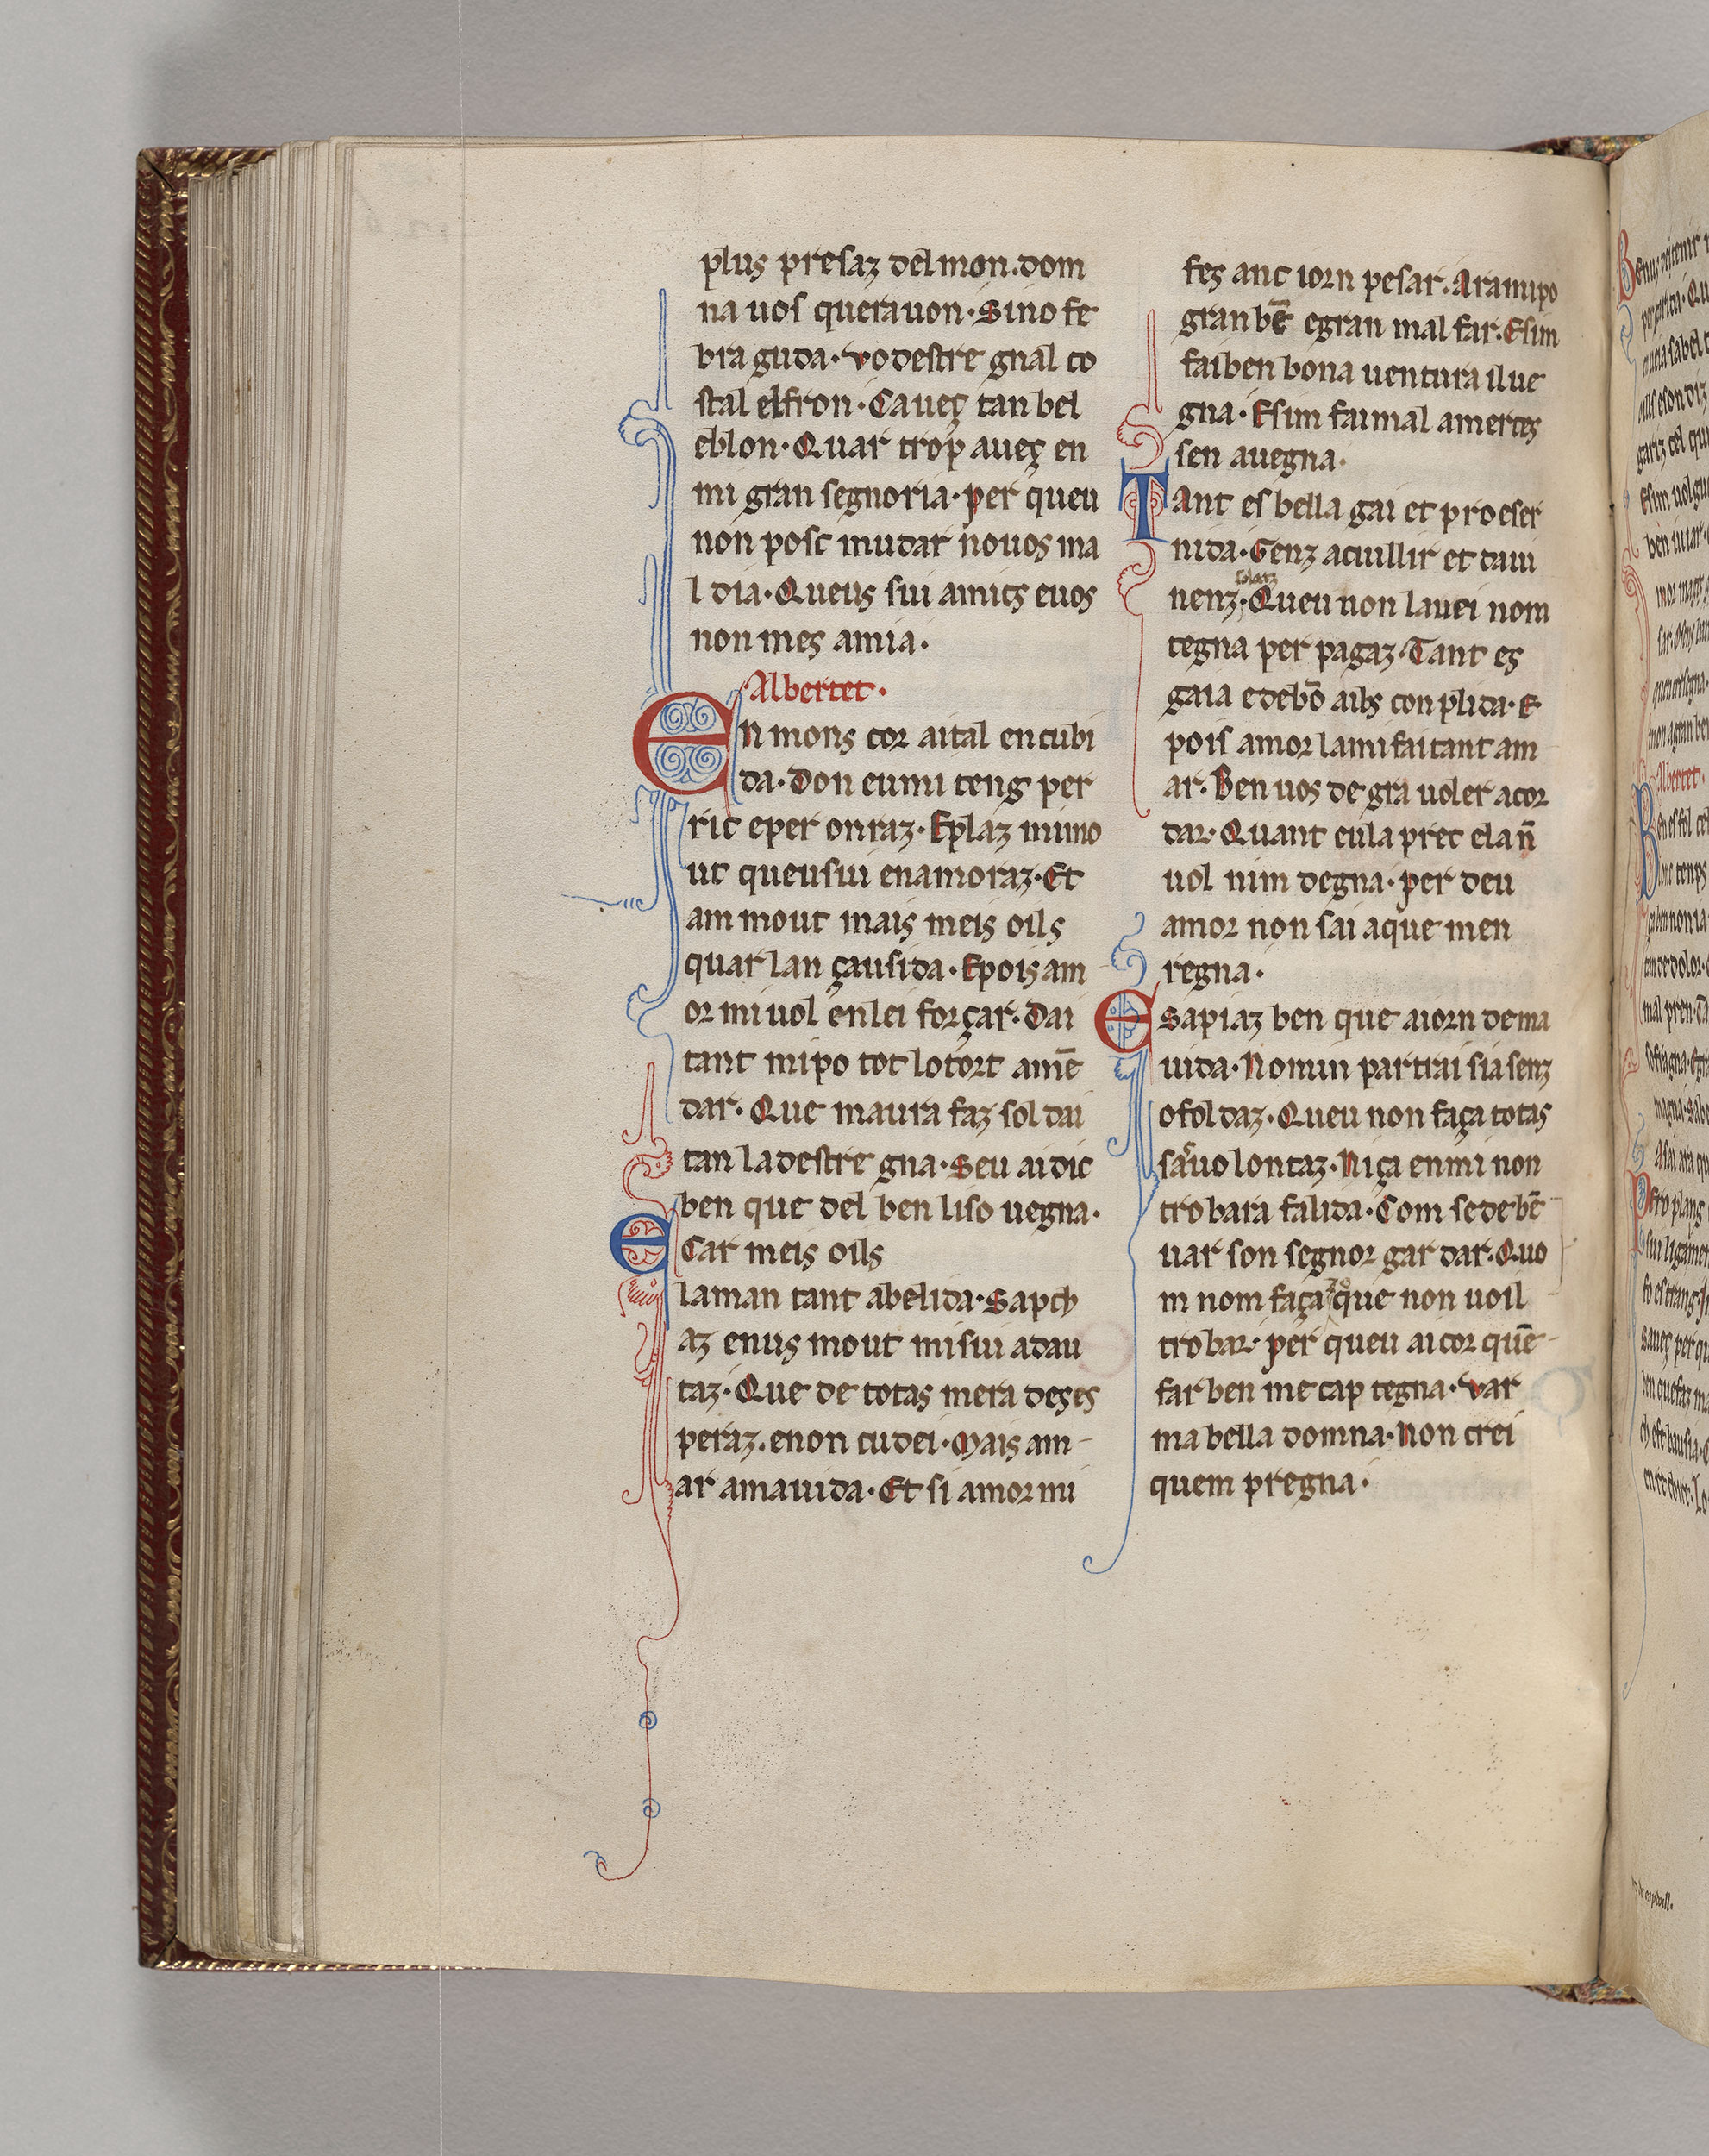 plus presaz del mon. dom
na uos quera uon. Si no fe
bra guda. vo destre gnal co
stal el fron. Caueç tan bel
eblon. Quar trop aueç en
mi gran segnoria. per queu
non posc mudar no uos ma
l dia. Queus sui amics euos
non mes amia.
Albertet.
En mons cor aital encubi
da. Don eumi teng per
ric eper onraz. Eplaz mimo
ut queusui enamoraz. Et
am mout mais meis oils
quar lan çausida. Epois am
or mi uol en lei forçar. Dai
tant mipo tot lo tort amē
dar. Que maura faz sol dai
tan la destre gna. Seu ai dic
ben que del ben liso uegna.
E Car meis oils
laman tant abelida. Sapch
az enus mout mi sui adau
taz. Que de totas mera dezes
peraz. enon cudei. Mais am
ar amauida. Et si amor mi
fes anc iorn pesar. Aramipo
gran bē egran mal far. Esim
fai ben bona uentura il ue
gna. Esim fai mal amerces
sen auegna.
Tant es bella gai et pro eser
nida. Genz acuillir et daui
solatz
nenz. Queu non lauei nom
tegna per pagaz. Tant es
gaia edebō aibs con plida. E
pois amor lami fai tant am
ar. Ben uos de gra uoler acor
dar. Quant eu la prec ela n̄
uol nim degna. per deu
amor non sai aque men
regna.
E sapiaz ben que aiorn de ma
uida. Nomin partrai sia senz
ofoldaz. Queu non faça totas
sa uo lontaz. Ni ça en mi non
trobara falida. Com se de bē
uar son segnor gar dar. Quo
m nom faça zo que non uoil
trobar. per queu ai cor quē
far ben me cap tegna. var
ma bella domna. Non crei
quem pregna.
Albertet.